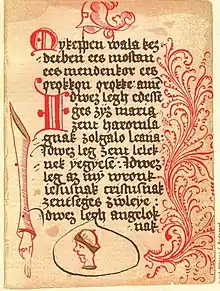 Mykeppen wala kez
detben ees mostan
ees mendenkor ees
ørøkkøn ørøkke: amē
Idwez legh edesse
ges zyz maria
zent haromsa
gnak zolgalo leana
Idwez leg zent lelek
nek yegyese: Idwez
leg az my wronk
iesusnak cristusnak
zentseges zwleye:
Idwez legh angelok
nak